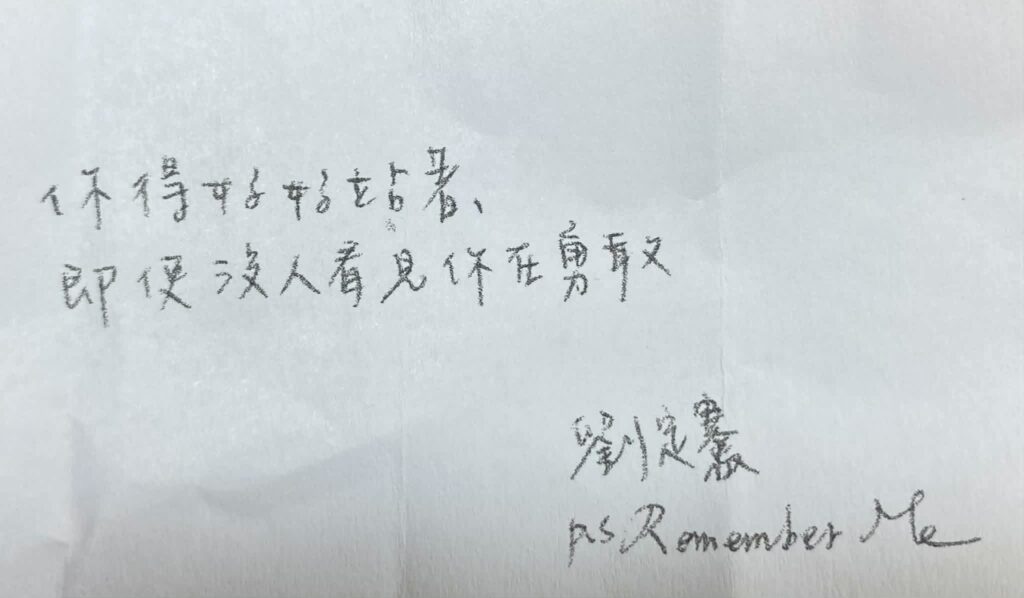 你得好好站着、
即便沒人看見你在勇敢
劉定騫
ps Remember Me